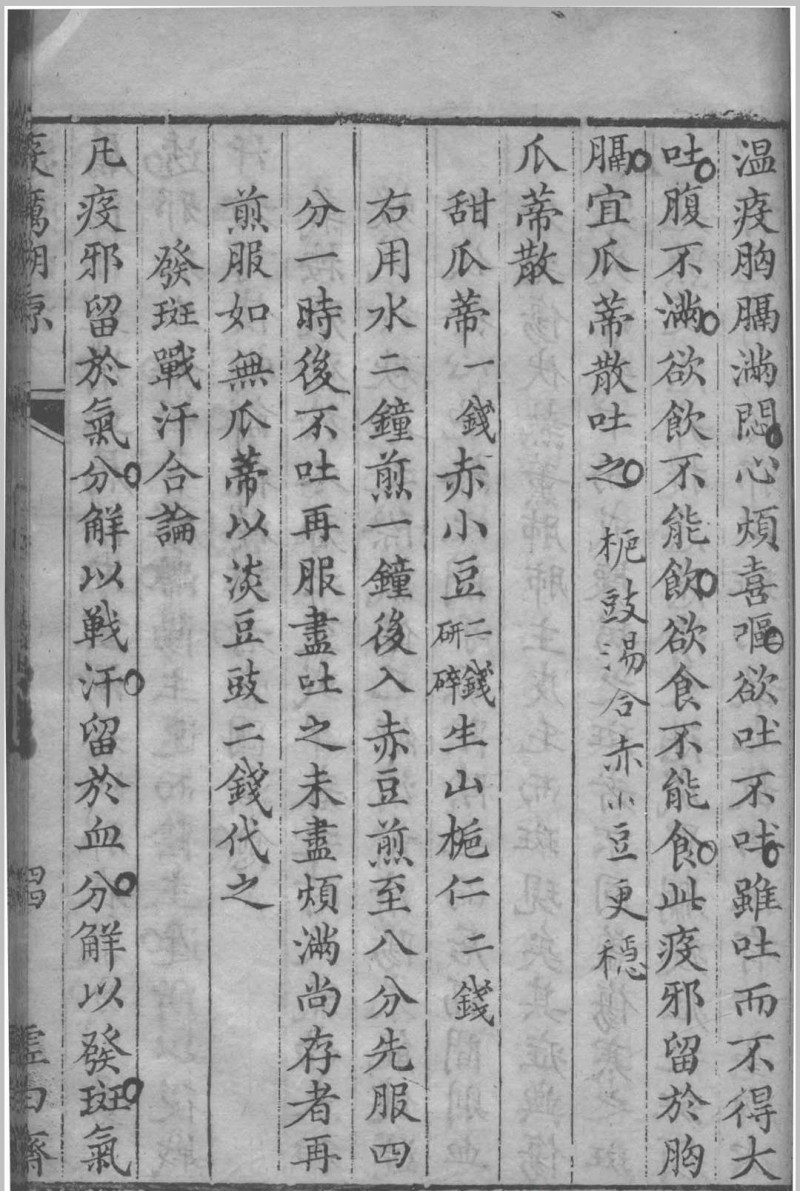 温疫胸膈滿悶心煩喜嘔欲吐不吐雖吐而不得大
吐腹不滿欲飲不能飲欲食不能食此疫邪留於胸
膈宜瓜蒂散吐之 梔豉湯合赤小豆更穩
瓜蒂散
甜瓜蒂一錢赤小豆二錢研碎生山梔仁二錢
右用水二鐘煎一鐘後入赤豆煎至八分先服四
分一時後不吐再服盡吐之未盡煩滿尚存者再
煎服如無瓜蒂以淡豆豉二錢代之
發斑戰汗合論
凡疫邪留於氣分解以戰汗留於血分解以發斑氣